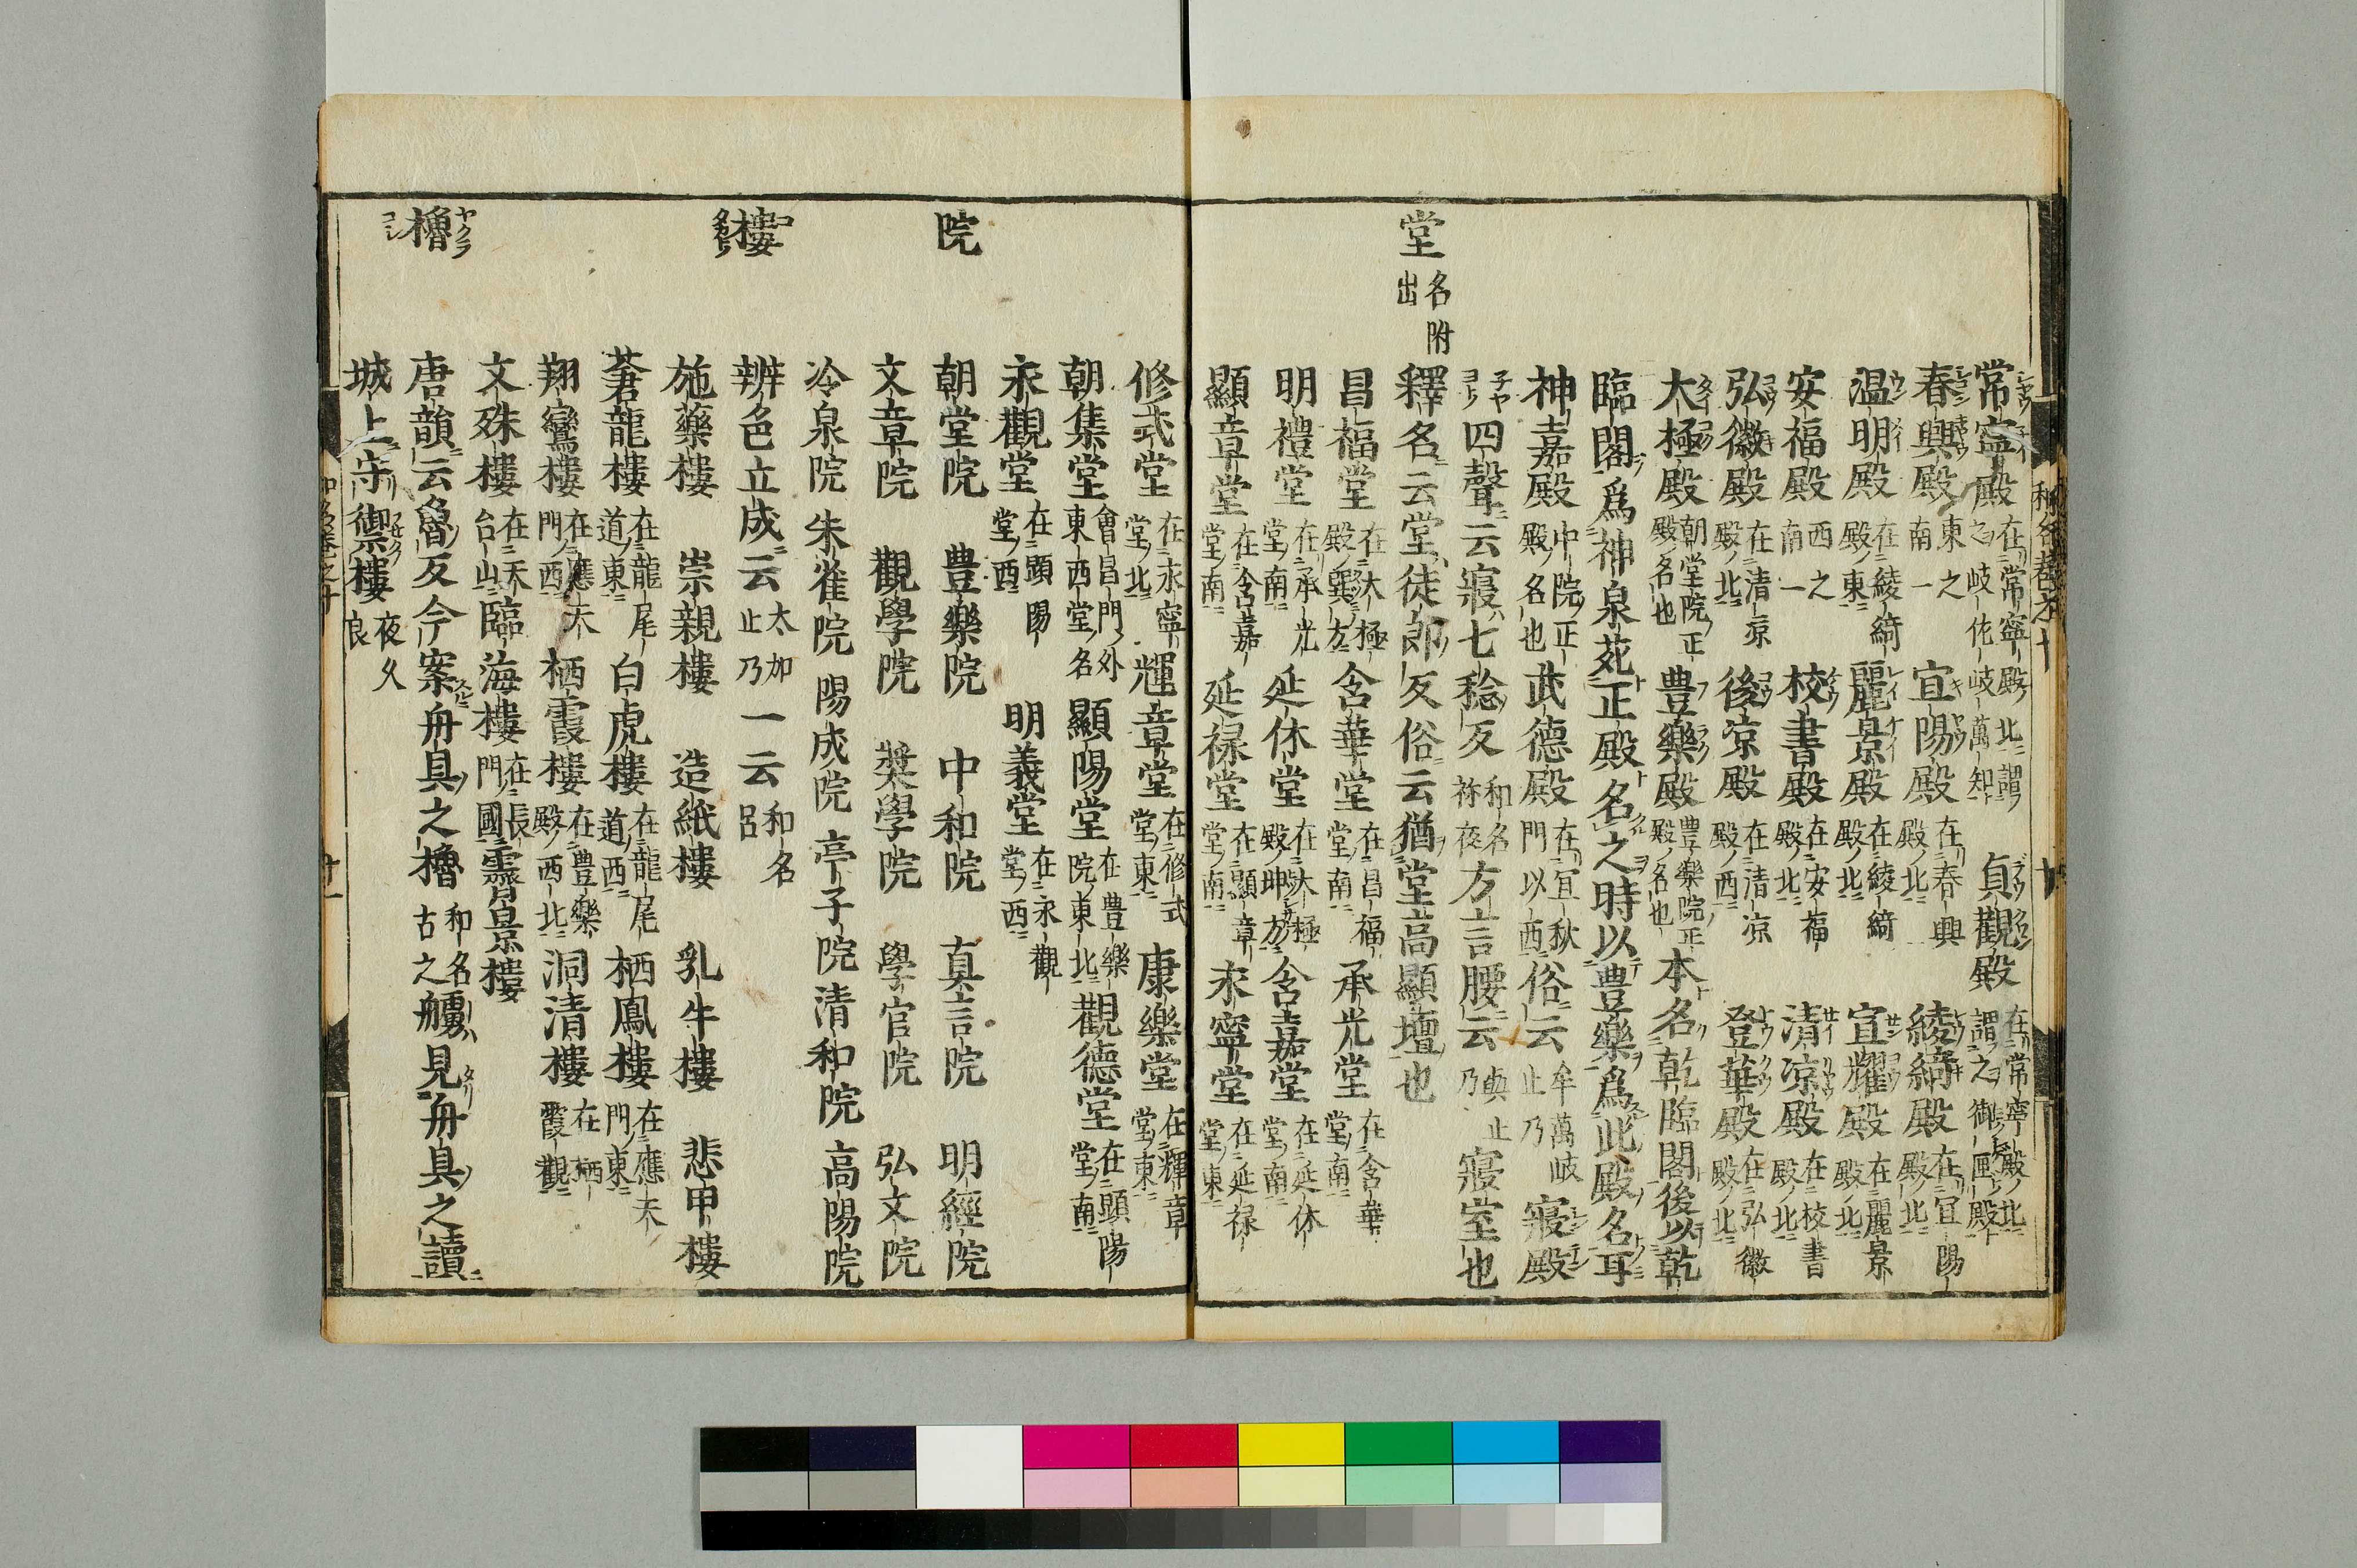 常寧殿 在常寧殿北謂之岐佐岐萬知 貞觀殿 在常寧殿北謂之御匣殿
春興殿 東之南一 宜陽殿 在春興殿北 綾綺殿 在宜陽殿北
温明殿 在綾綺殿東 麗景殿 在綾綺殿北 宣耀殿 在麗景殿北
安福殿 西之南一 校書殿 在安福殿北 清凉殿 在校書殿北
弘徽殿 在清凉殿北 後凉殿 在清凉殿西 登華殿 在弘徽殿北
大極殿 朝堂院正殿名也 豊樂殿 豊樂院正殿名也 本名乾臨閣後以乾
臨閣爲神泉苑正殿名之時以豊樂爲此殿名耳
神嘉殿 中院正殿名也 武德殿 在宜秋門以西 俗云 牟萬岐止乃 寢殿
子ヤヨト 四聲云寢七稔反 和名祢夜 方言腰云 與止乃 寢室也
堂 名附出 釋名云堂徒郎反俗云猶堂高顯壇也
昌福堂 在大極殿巽方 含華堂 在昌福堂南 承光堂 在含華堂南
明禮堂 在承光堂南 延休堂 在大極殿坤方 含嘉堂 在延休堂南
顯章堂 在含嘉堂南 延禄堂 在顯章堂南 永寧堂 在延禄堂東
修式堂 在永寧堂北 輝章堂 在修式堂東 康樂堂 在輝章堂東
朝集堂 會昌門外東西堂名 顯陽堂 在豊樂院東北 觀德堂 在顯陽堂南
永觀堂 在顯陽堂西 明義堂 在永觀堂西
院 朝堂院 豊樂院 中和院 真言院 明經院
文章院 觀學院 奨學院 學官院 弘文院
冷泉院 朱雀院 陽成院 亭子院 清和院 高陽院
樓 辨色立成云 太加止乃 一云 和名呂
施藥樓 崇親樓 造紙樓 乳牛樓 悲甲樓
蒼龍樓 在龍尾道東 白虎樓 在龍尾道西 栖鳳樓 在應天門東
翔鸞樓 在應天門西 栖霞樓 在豊樂殿西北 洞清樓 在栖霞觀
文殊樓 在天台山 臨海樓 在長門國 霽景樓
櫓 ヤクラ コシ 唐韻云魯反今案舟具之櫓 和名古之 艣見舟具之讀
城上守禦樓 夜久良